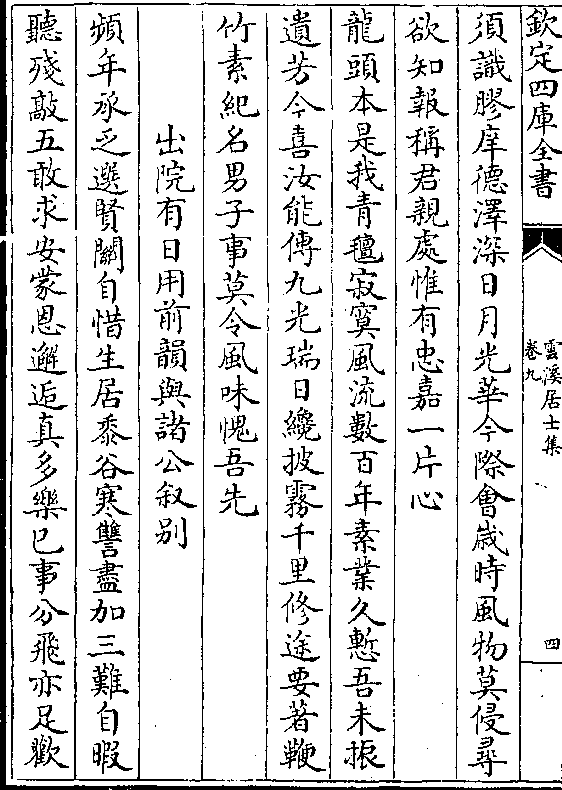 欽定四庫全書
雲溪居士集
卷九
四
須識膠庠德澤深日月光華今際會歲時風物莫侵尋
欲知報稱君親處惟有忠嘉一片心
龍頭本是我青氊寂寞風流數百年素業久慙吾未振
遺芳今喜汝能傳九光瑞日纔披霧千里修途要著鞭
竹素紀名男子事莫令風味愧吾先
出院有日用前韻與諸公叙别
頻年承乏選賢關自惜生居黍谷寒讐盡加三難自暇
聽殘敲五敢求安蒙恩邂逅真多樂已事分飛亦足歡